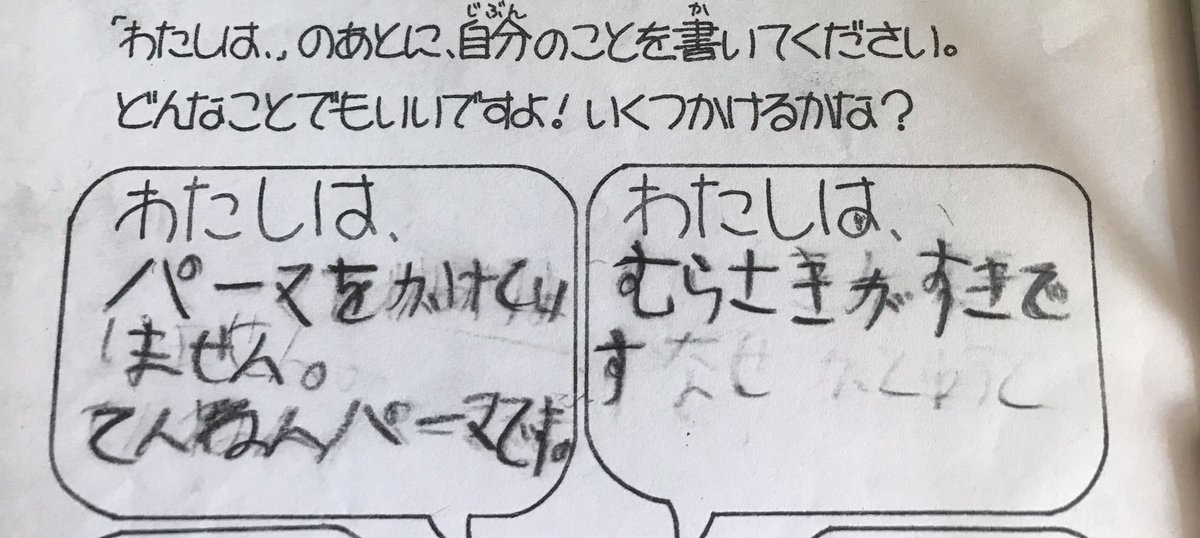 「わたしは、」のあとに、自分のことを書いてください。
どんなことでもいいですよ！いくつかけるかな？
わたしは、
パーマをかけてい
ません。
てんねんパーマです。
わたしは、
むらさきがすきで
す